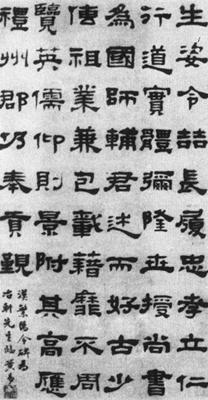 生姿令喆長履忠孝立仁
行道實體彌隆世授尚書
為國師輔君述而好古少
傳祖業兼包載籍靡不周
覽英儒仰則景附其高應
禮州郡仍奉貢覲
漢繁陽令碑為
冶軒先生臨黃易